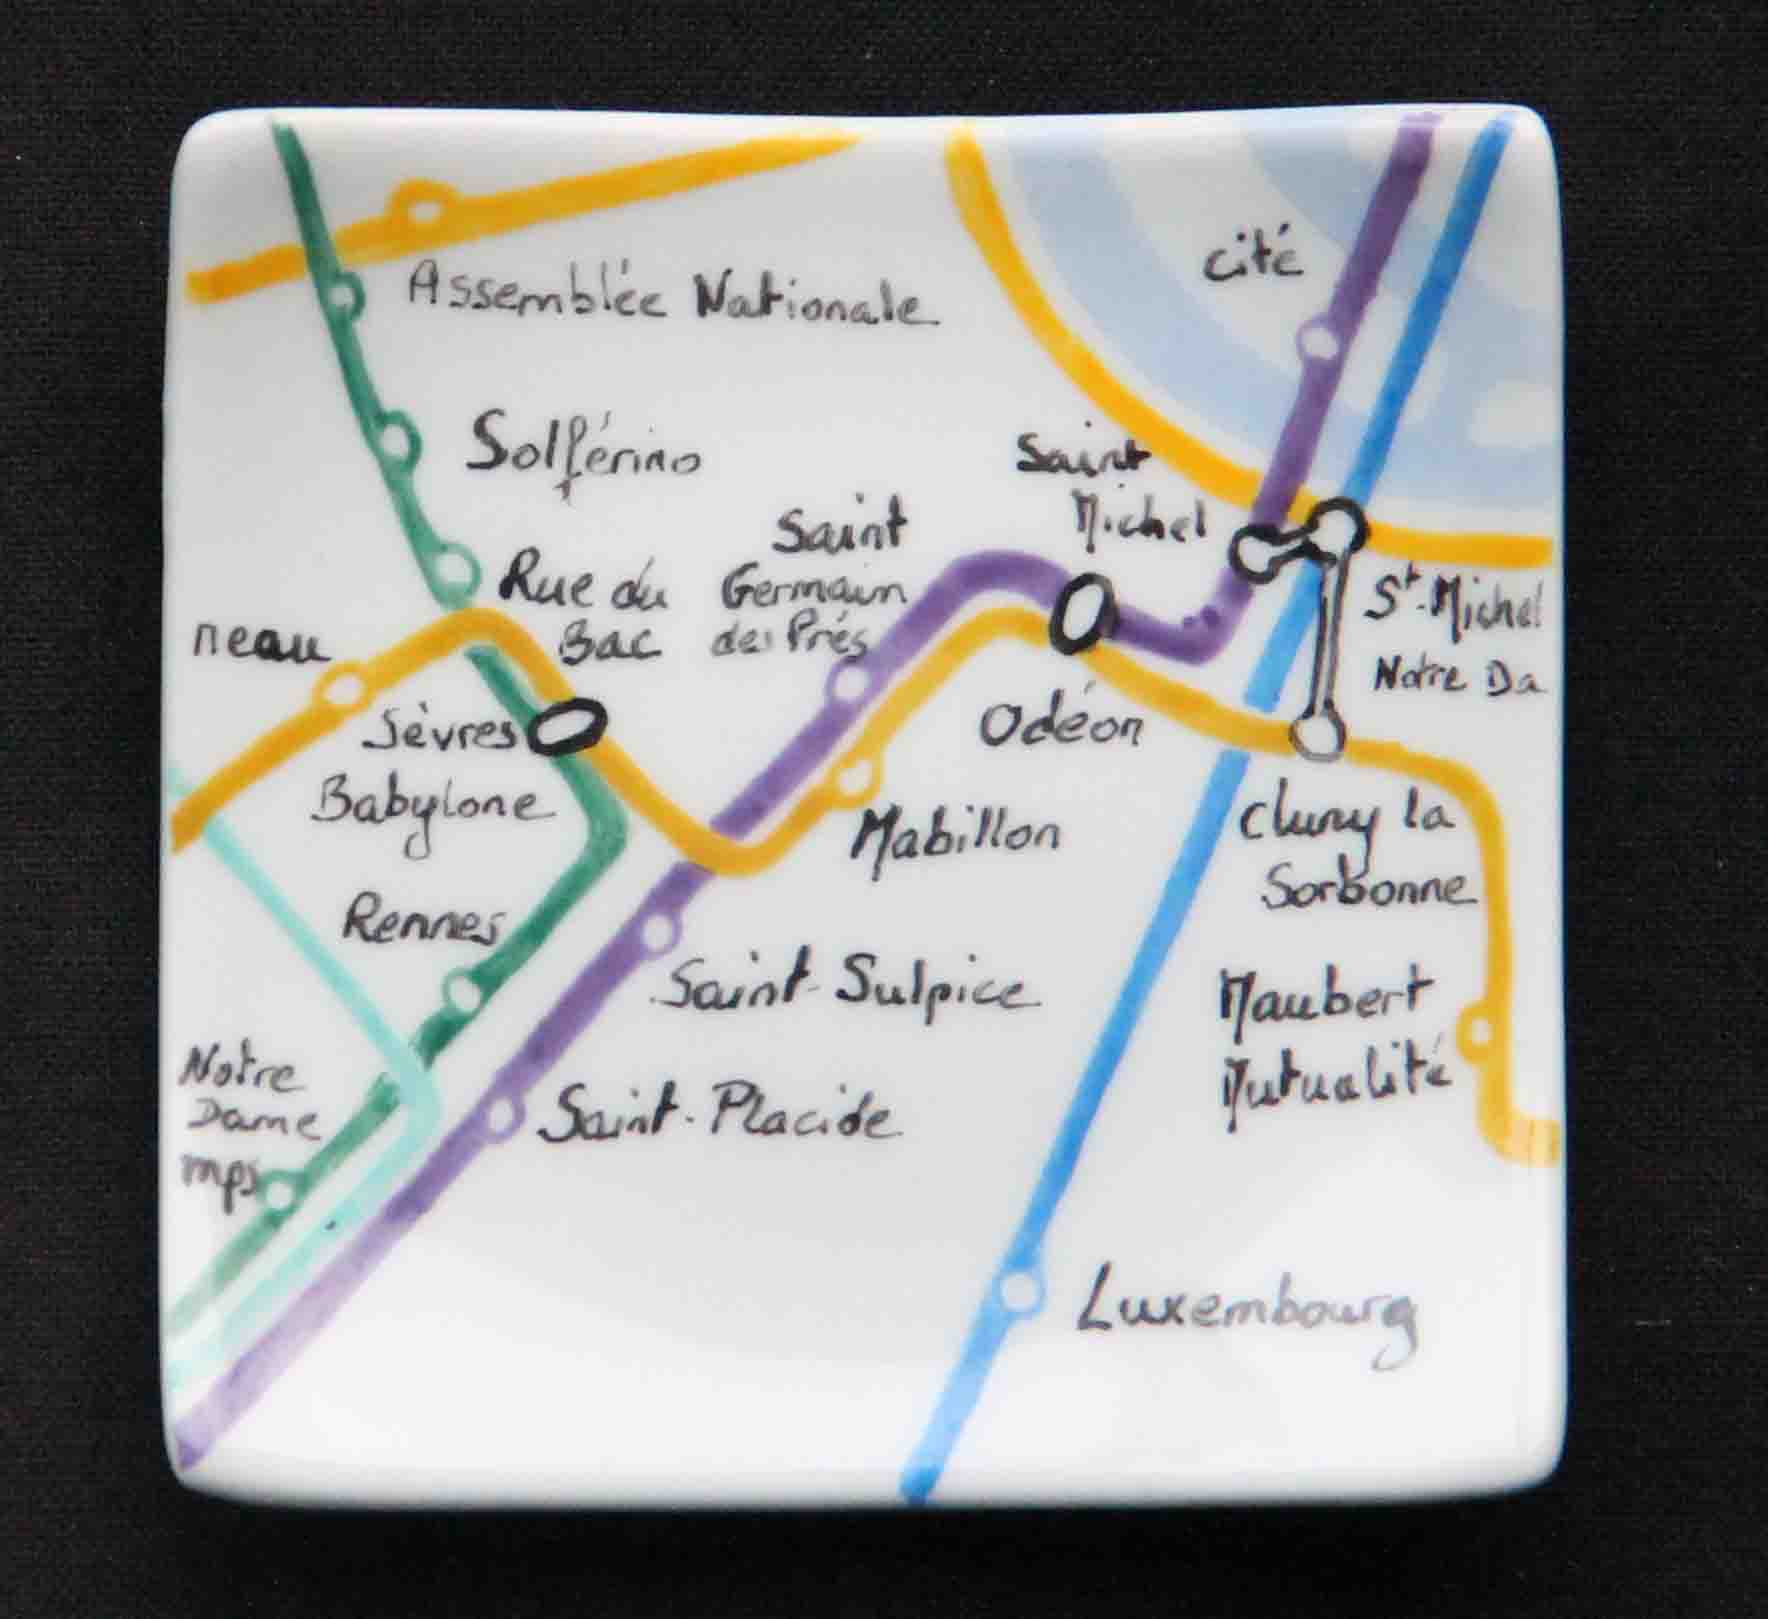 Cité
Assemblée Nationale
Solférino
Saint
Michel
Saint
Germain
des Prés
Rue du
Bac
St-Michel
Notre Da
neau
Sèvres
Babylone
Odéon
Mabillon
Cluny la
Sorbonne
Rennes
Saint-Sulpice
Maubert
Mutualité
Notre
Dame
mps
Saint-Placide
Luxembourg